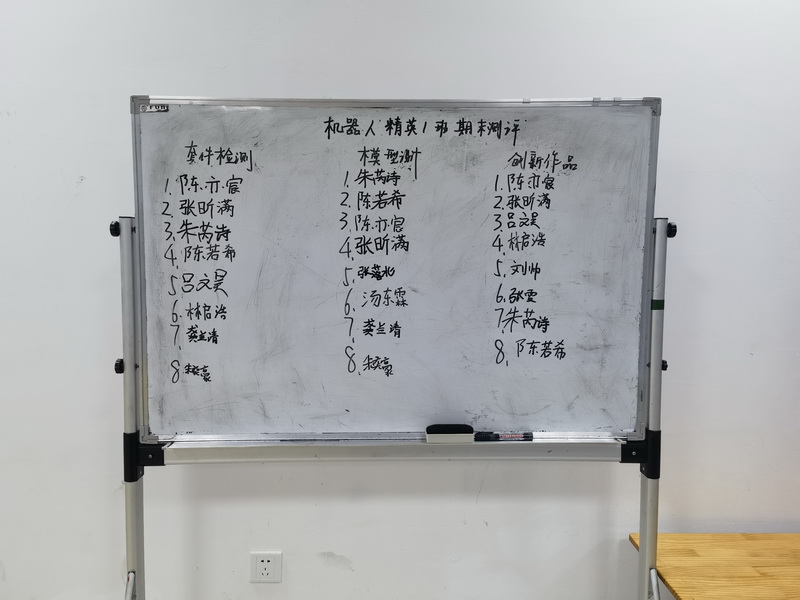 机器人精英1班期末测评
套件检测
1.陈亦宸
2.张昕满
3.朱芮诗
4.陈若希
5.吕文昊
6.林启浩
7.龚兰清
8.朱奕豪
模型测计
1.朱芮诗
2.陈若希
3.陈亦宸
4.张昕满
5.
6.汤东霖
7.龚兰清
8.朱奕豪
创新作品
1.陈亦宸
2.张昕满
3.吕文昊
4.林启浩
5.刘帅
6.张雯
7.朱芮诗
8.陈若希